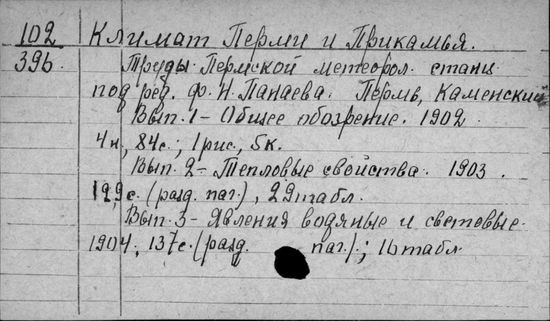 102 Климат Перми и Прикамья.
396 Труды Пермской метеорол. станц.
под ред. Ф.Н.Панаева. Пермь, Каменский
Вып. 1 - Общее обозрение. 1902.
4н., 84с.; 1 рис., 5к.
Вып. 2 - Тепловые свойства. 1903.
129с. (разд. паг.), 29 табл.
Вып. 3 - Явления водяные и световые.
1904, 137с. (разд. паг.); 16 табл